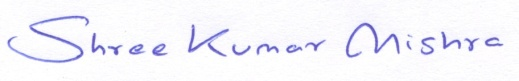 Shree Kumar Mishra